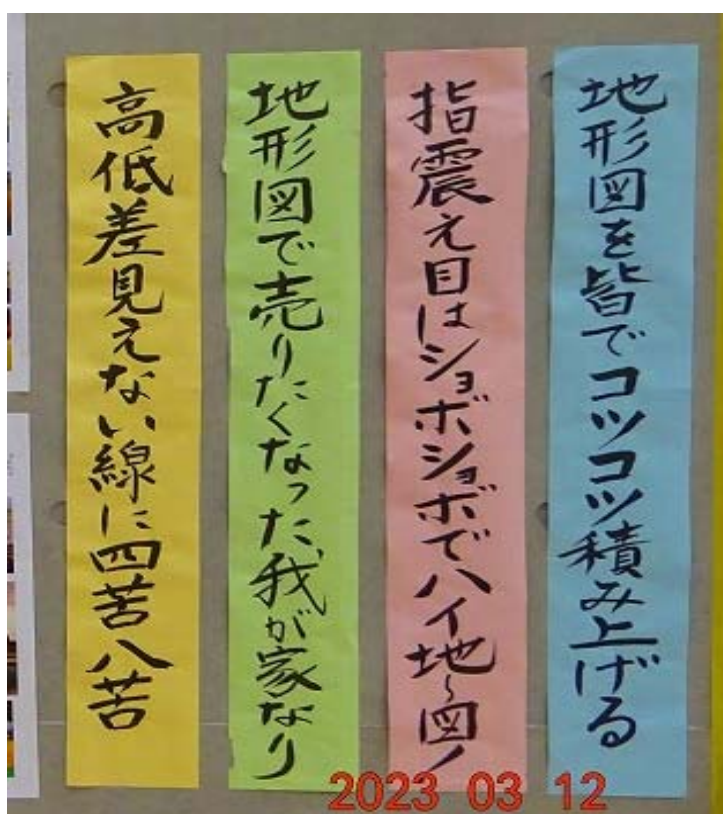 地形図を皆でコツコツ積み上げる
指震え目はショボショボでハイ地~図!
地形図で売りたくなった、我が家なり
高低差見えない線に四苦八苦
2023 03 12